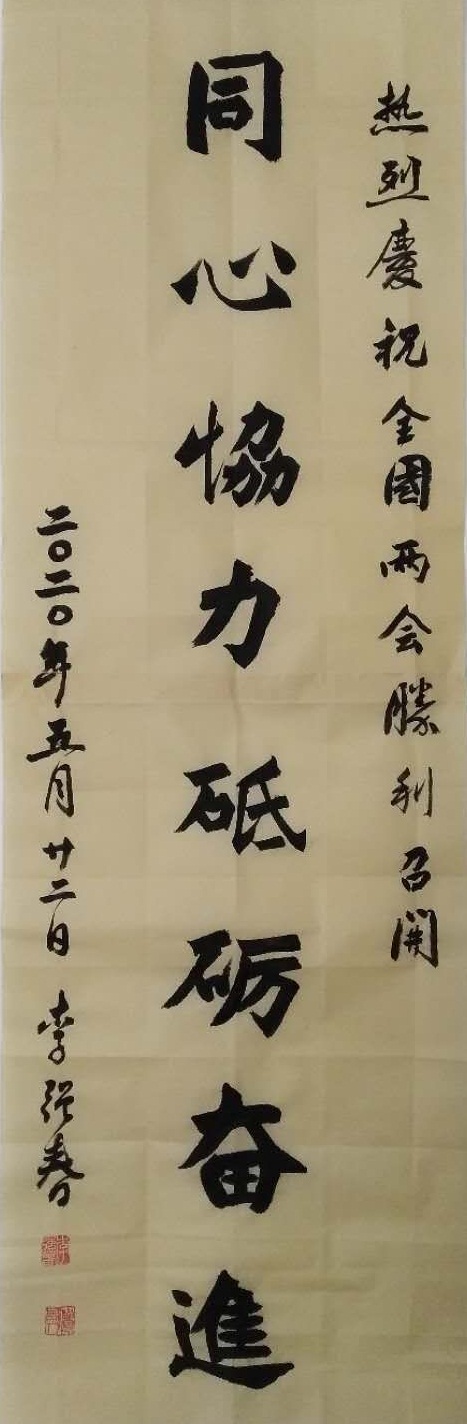 热烈慶祝全國两会勝利召開
同心協力砥砺奋進
二〇二〇年五月廿二日 李强春